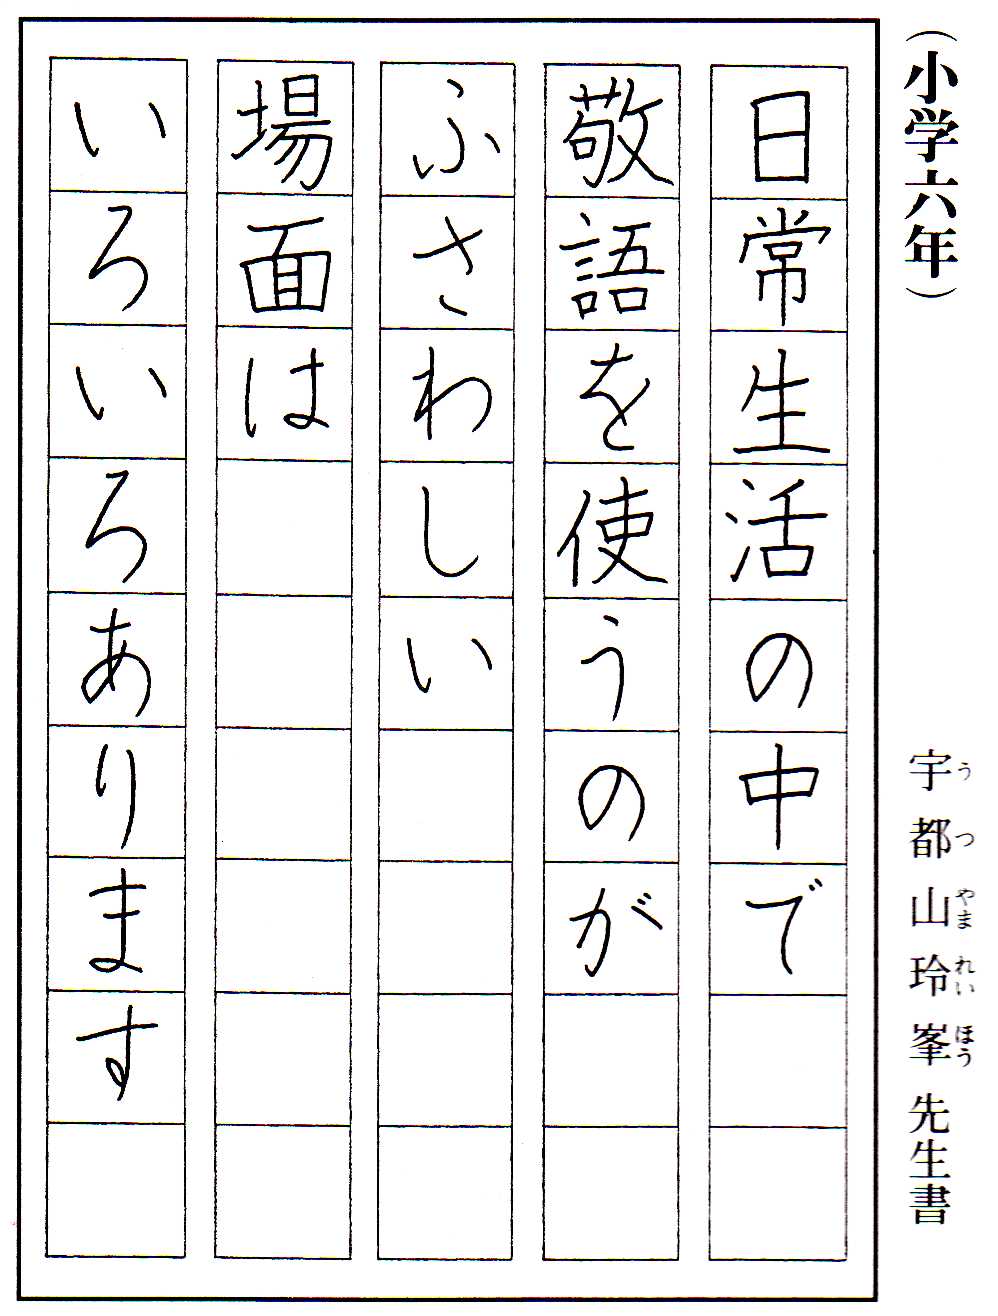 （小学六年）
宇都山玲峯先生書
うつやまれいほう
日常生活の中で
敬語を使うのが
ふさわしい
場面は
いろいろあります